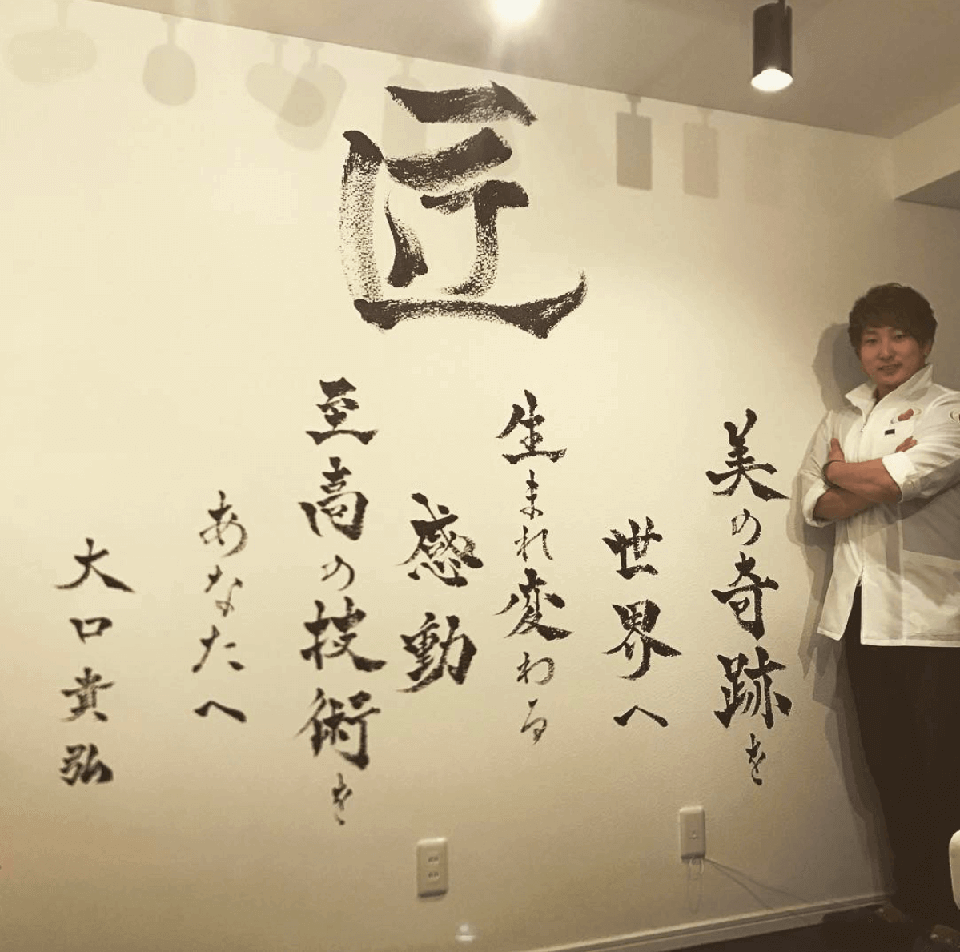 匠
美の奇跡を
世界へ
生まれ変わる
感動
至高の技術を
あなたへ
大口貴弘